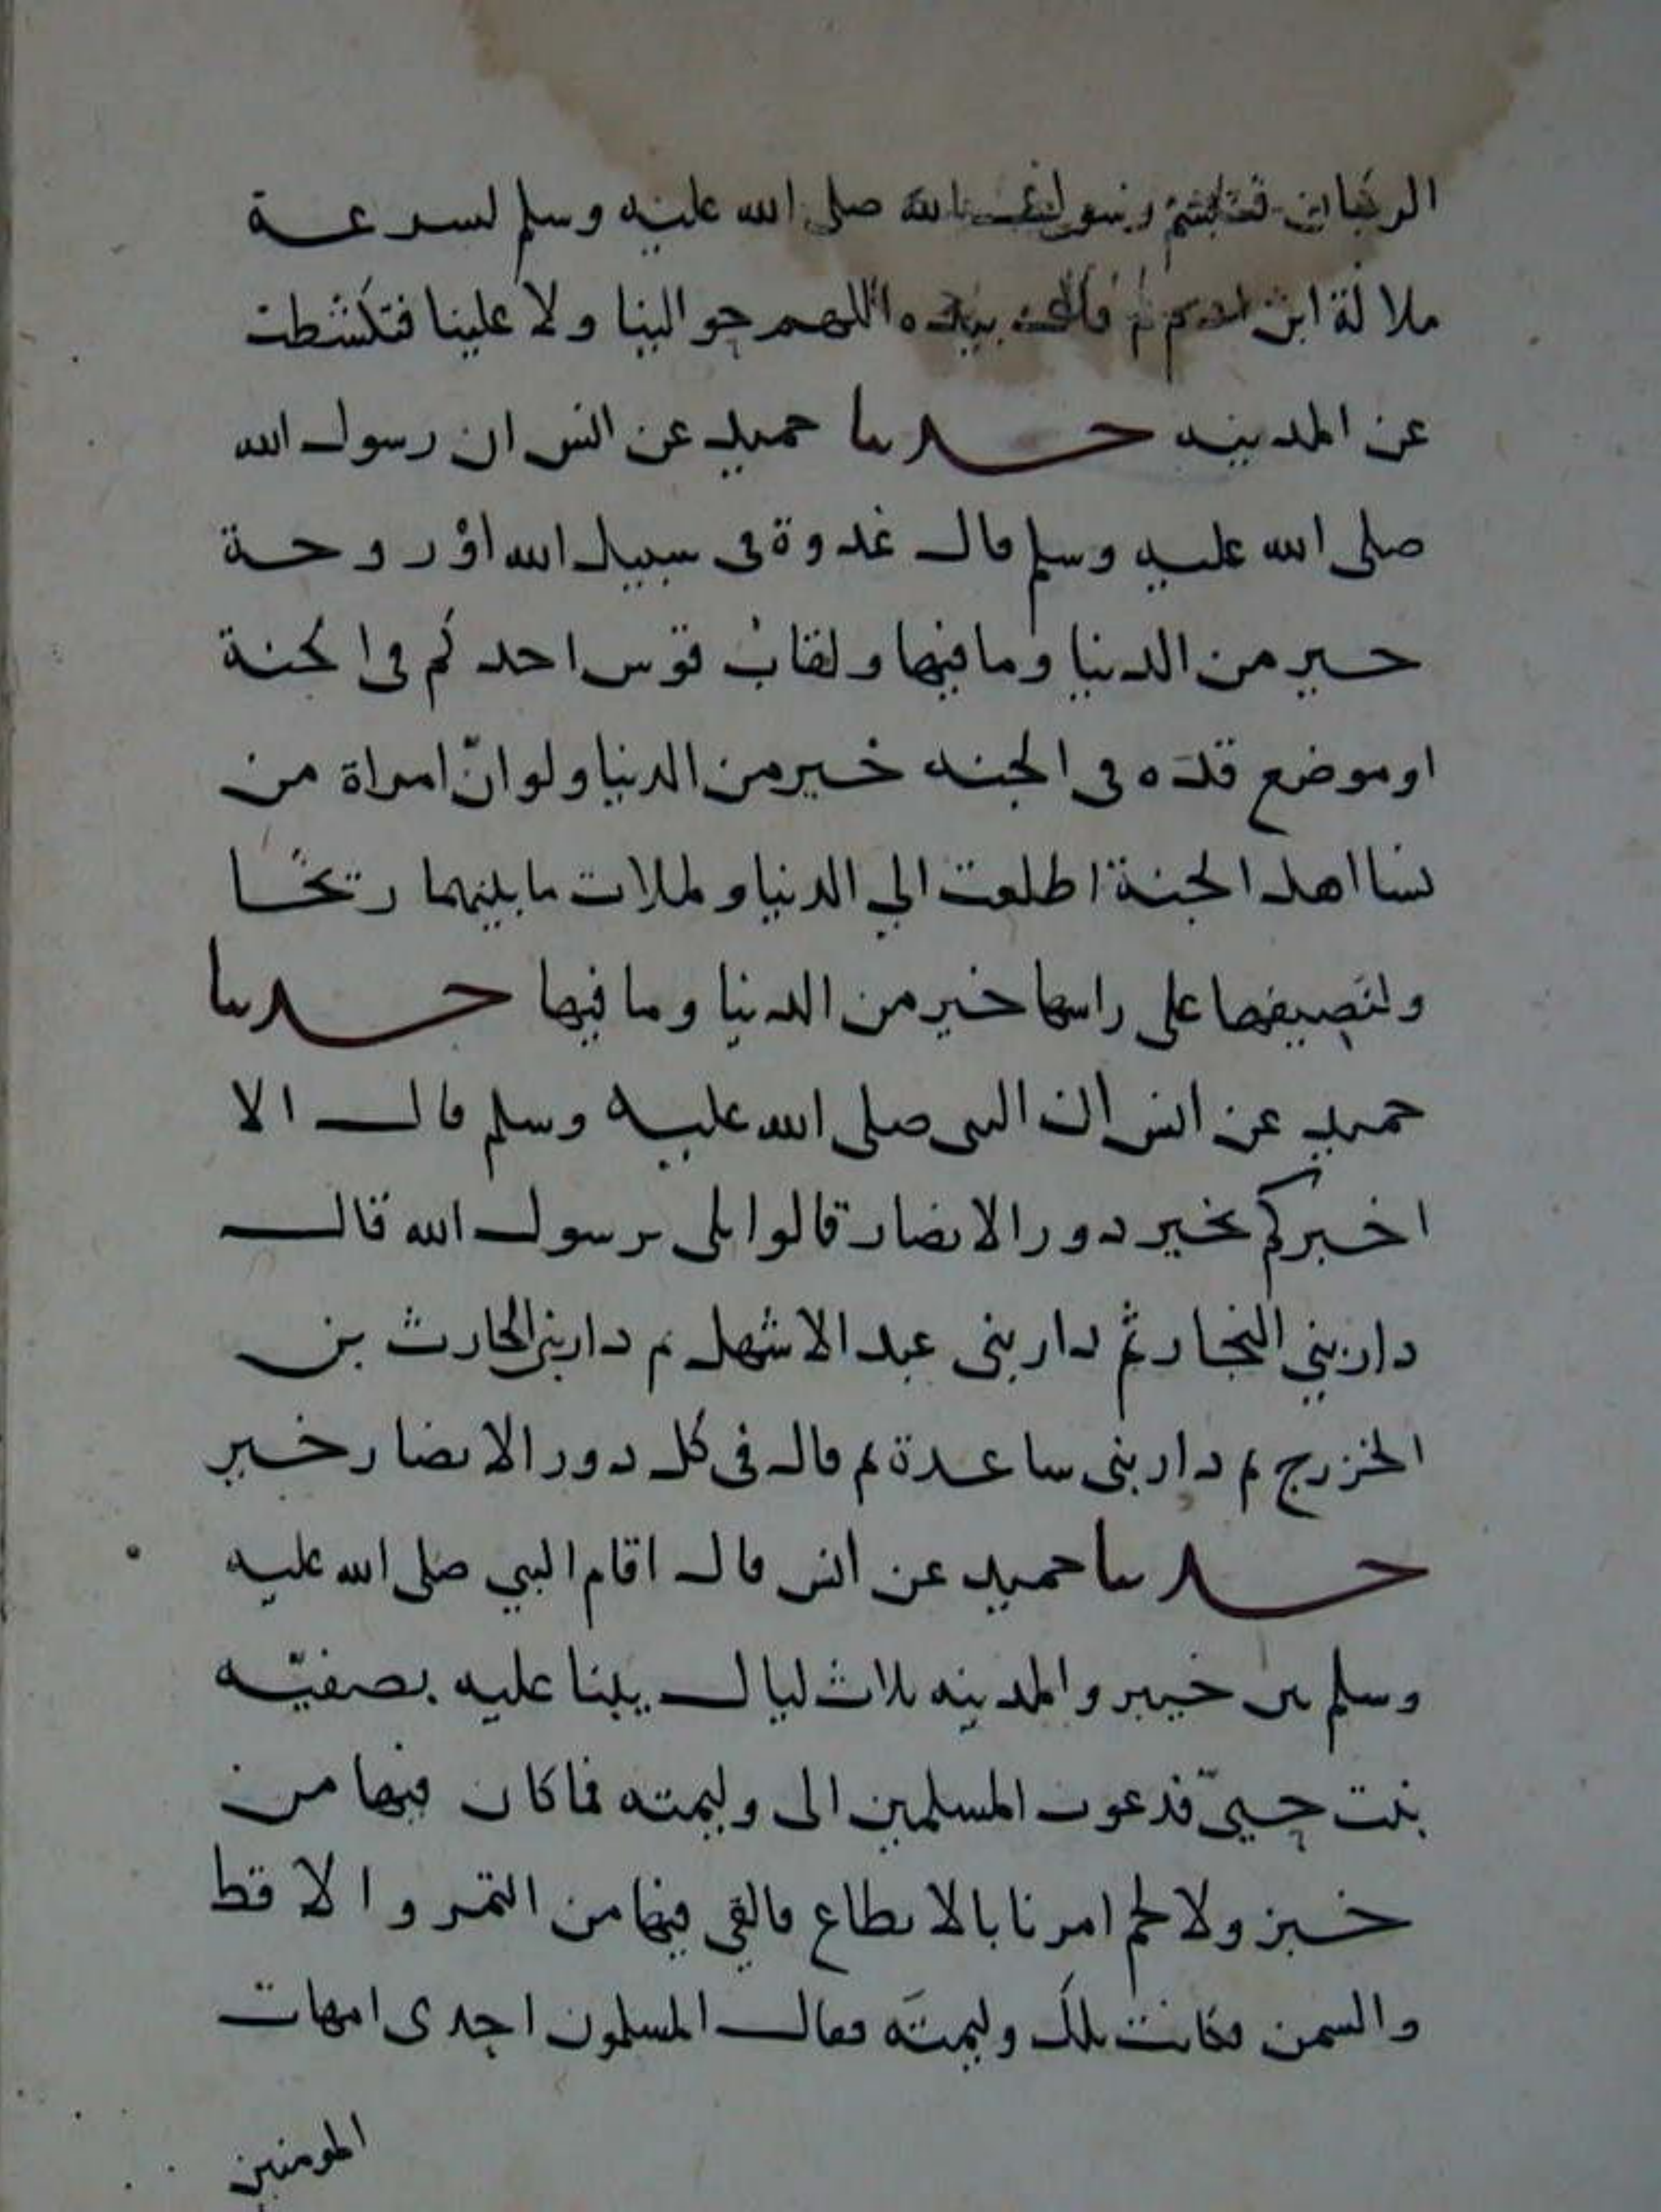 الركبان فتبسم رسول الله صلى الله عليه وسلم لسرعة
ملالة ابن ادم ثم قال بيده اللهم حوالينا ولا علينا فتكشطت
عن المدينه حدثنا حميد عن انس ان رسول الله
صلى الله عليه وسلم قال غدوة في سبيل الله اوْ روحة
خير من الدنيا وما فيها ولقاب قوس احدكم في الجنة
او موضع قده في الجنه خير من الدنيا ولو انّ امراة من
نسا اهل الجنة اطلعت الي الدنيا و لملات ما بينهما ريحًا
ولنصيفها على راسها خير من الدنيا وما فيها حدثنا
حميد عن انس ان النبى صلى الله عليه وسلم قال الا
اخبركم بخير دور الانصار قالوا بلى يرسول الله قال
دار بني النجار ثم دار بنى عبد الاشهل ثم دار بنى الحارث بن
الخزرج ثم دار بنى ساعدة ثم قال في كل دور الانصار خير
حدثنا حميد عن انس قال اقام النبي صلى الله عليه
وسلم بين خيبر والمدينه ثلاث ليال يبنا عليه بصفيّه
بنت حييّ فدعوت المسلمين الى وليمته فما كان فيها من
خبز ولا لحم امرنا بالانطاع فالقي فيها من التمر والاقط
والسمن فكانت تلك وليمتَه فقال المسلمون احدى امهات
المومنين